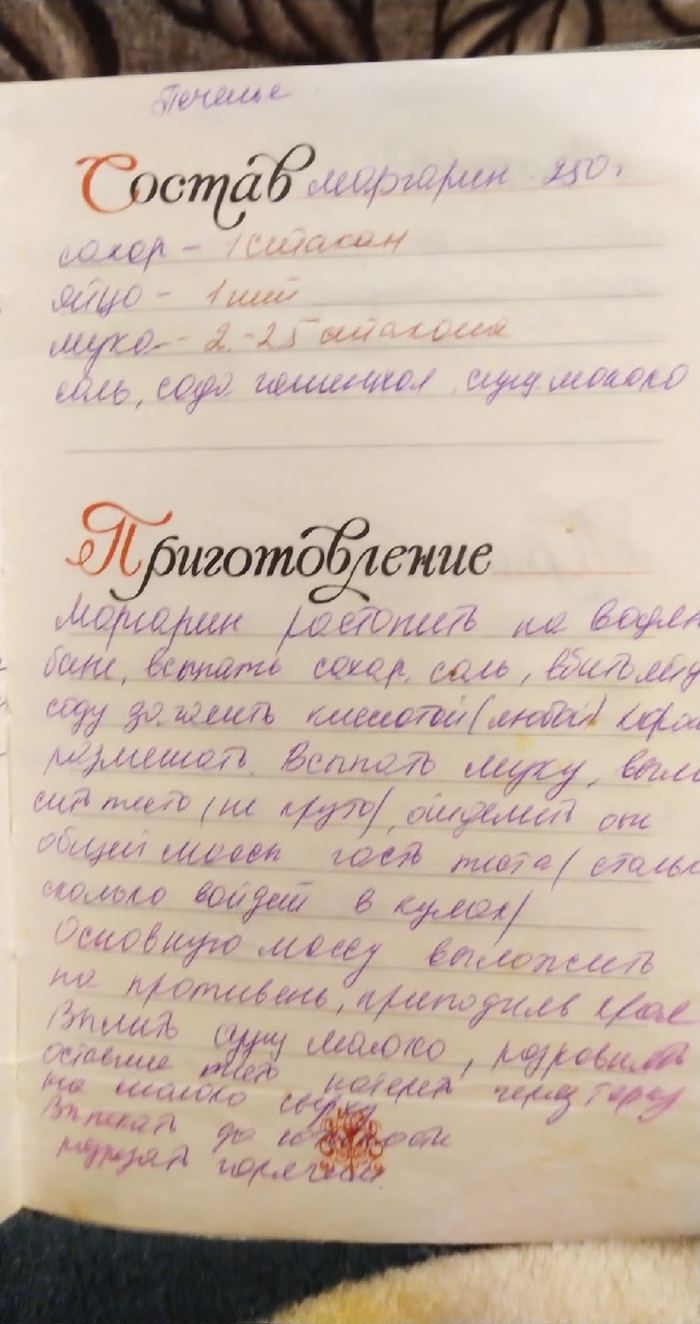 Печенье
Состав маргарин - 250г
сахар - 1 стакан
яйцо - 1 шт
мука - 2-2,5 стакана
соль, сода гашенная, сгущ молоко
Приготовление
Маргарин растопить на водян
бане, всыпать сахар, соль, вбить яйц
соду загасить кислотой (любой) хорош
размешать. Всыпать муку, выме
сить тесто (не круто), отделить от
общей массы часть теста (стольк
сколько войдет в кулак)
Основную массу выложить
на противень, приподняв края
Вылить сгущ молоко, разровнять
оставшее тесто натереть через терку
на молоко сверху
Выпекать до готовности
разрезать горячим